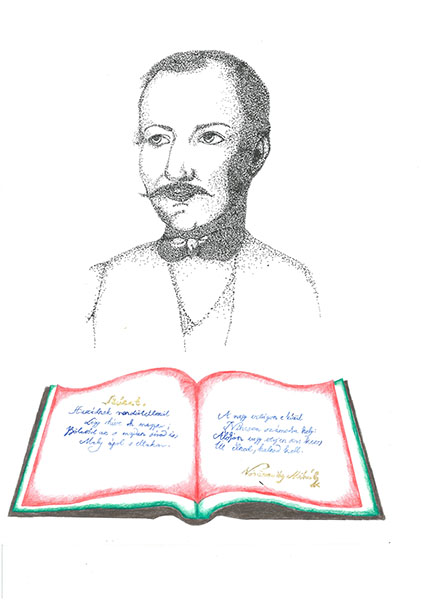 Szózat.
Hazádnak rendületlenül
Légy híve, oh magyar;
Bölcsőd az s majdan sírod is,
Mely ápol s eltakar.
A nagy világon e kívül
Nincsen számodra hely;
Áldjon vagy verjen sors keze;
Itt élned, halnod kell.
Vörösmarty Mihály